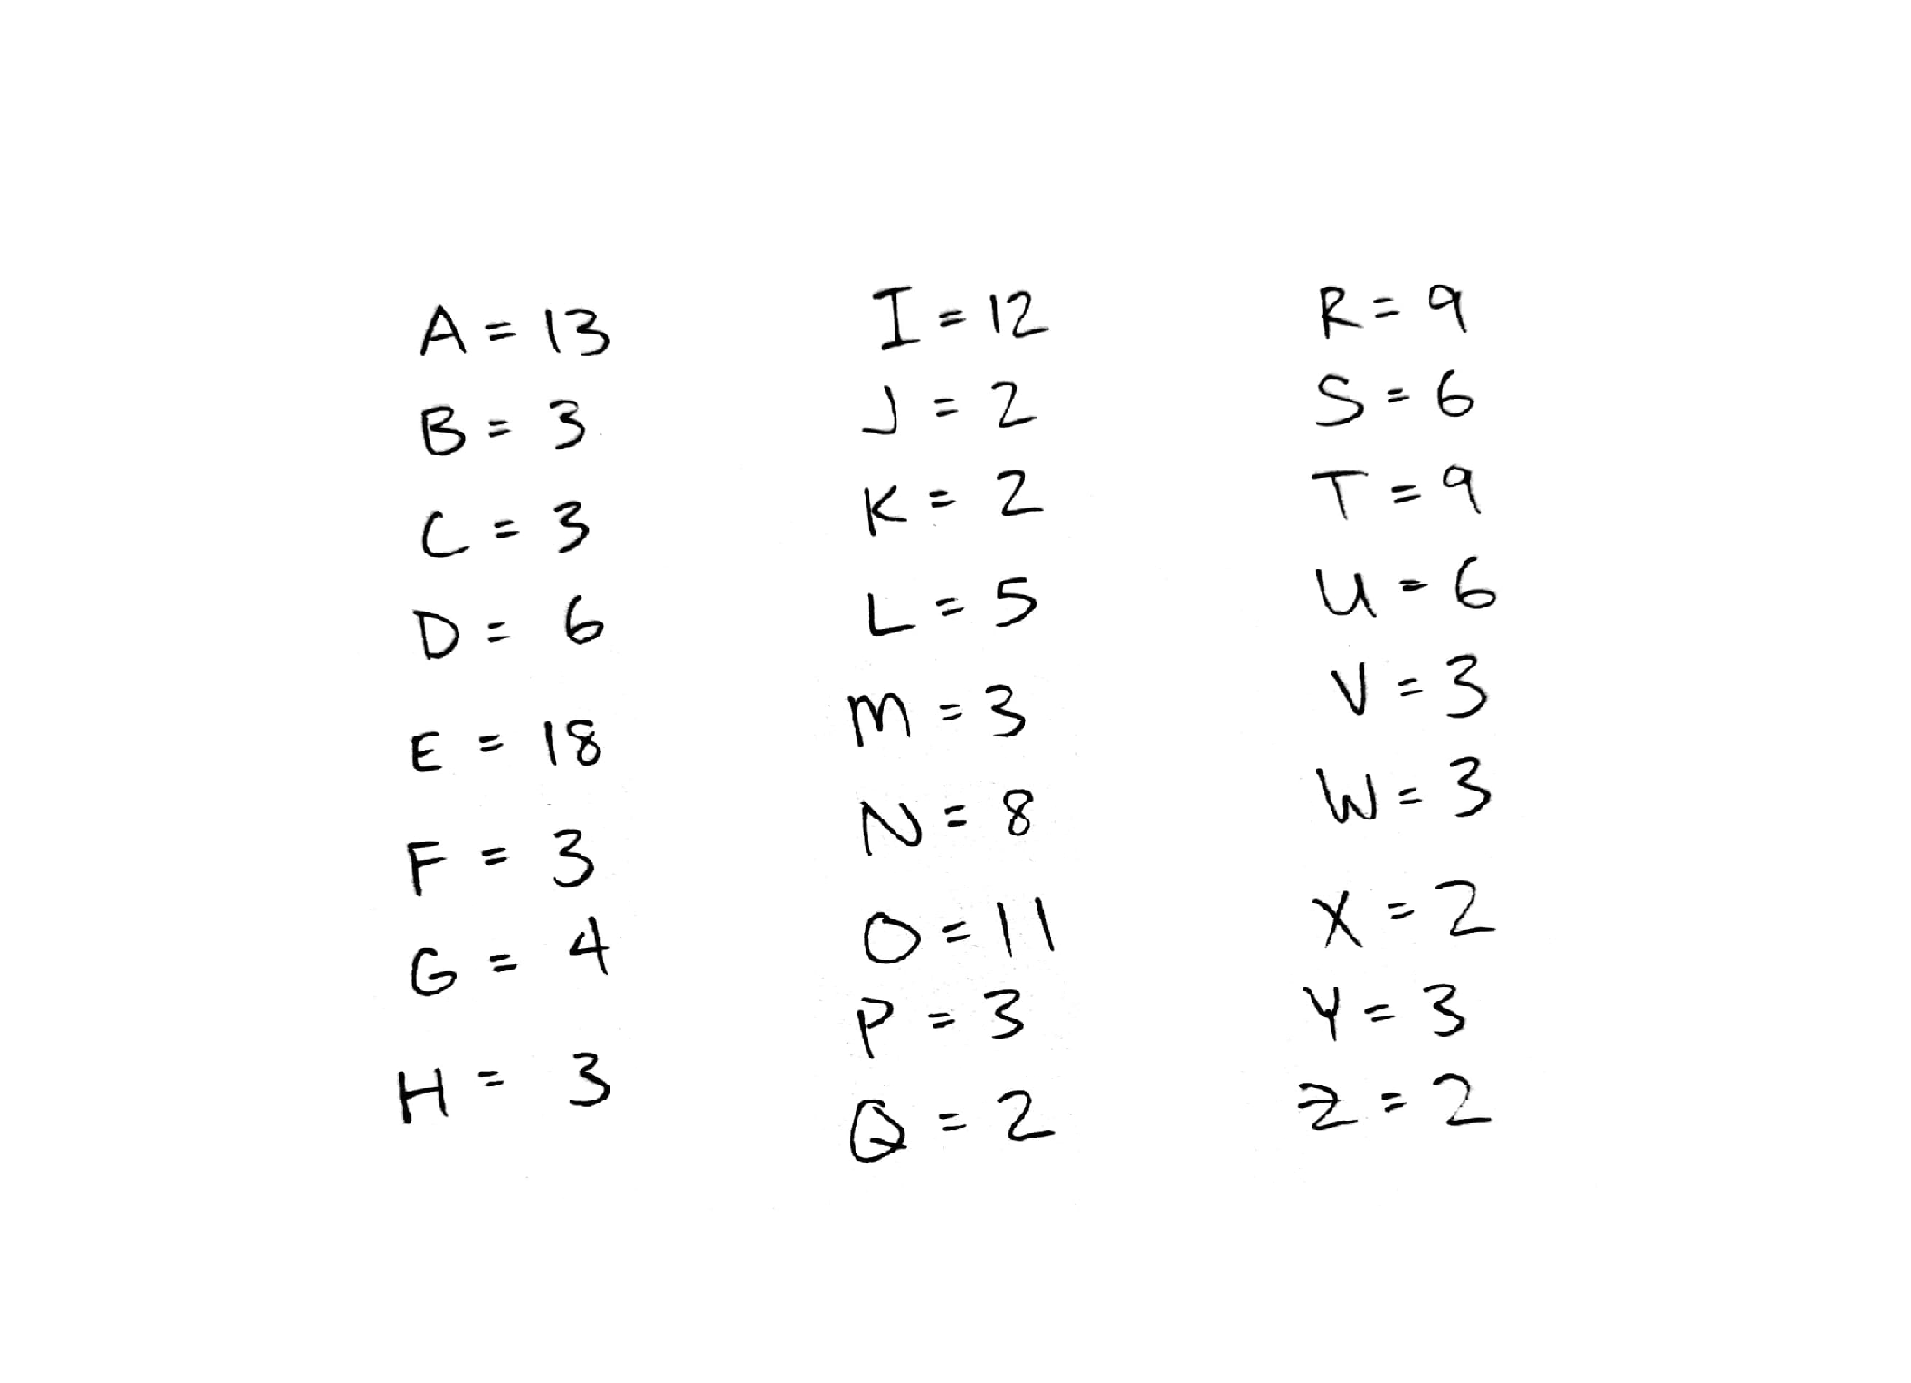 A = 13
B = 3
C = 3
D = 6
E = 18
F = 3
G = 4
H = 3
I = 12
J = 2
K = 2
L = 5
M = 3
N = 8
O = 11
P = 3
Q = 2
R = 9
S = 6
T = 9
U = 6
V = 3
W = 3
X = 2
Y = 3
Z = 2